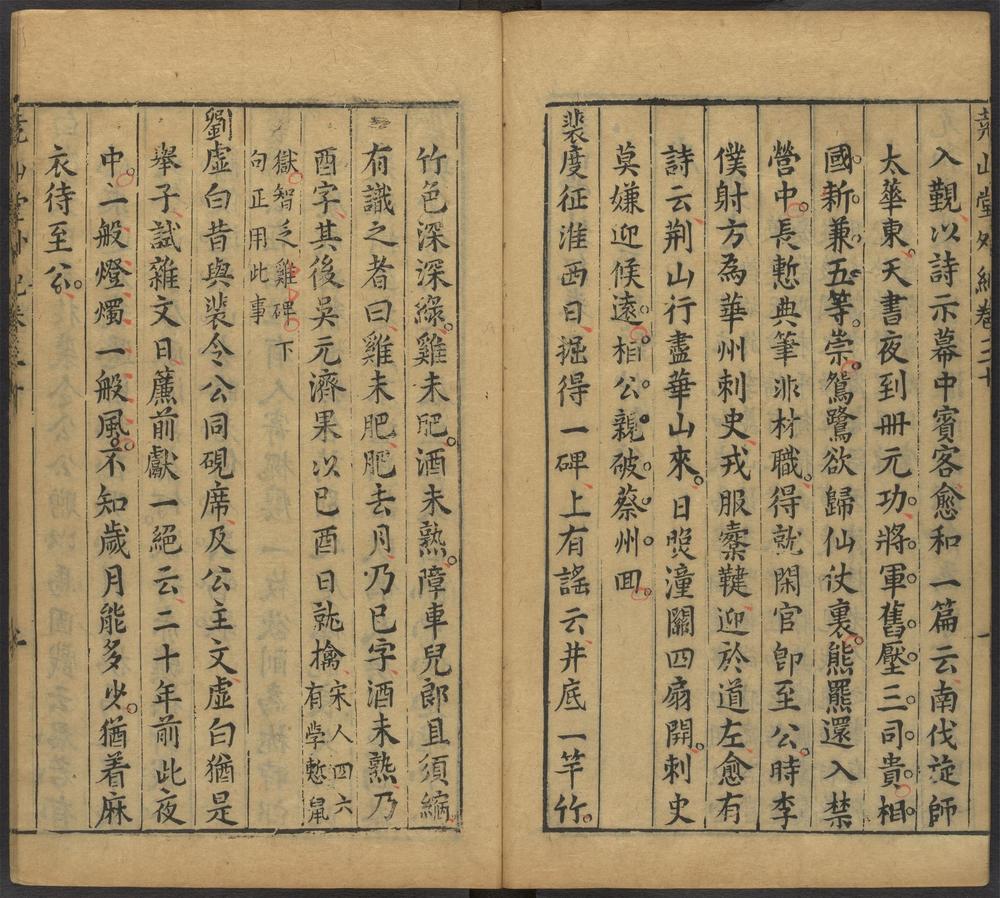 堯山堂外紀卷三十
入覲以詩示幕中賓客愈和一篇云南伐旋師
太華東天書夜到冊元功將軍舊壓三司貴相
國新兼五等崇鴛鷺欲歸仙仗裏熊羆還入禁
營中長慙典筆非材職得就閑官卽至公時李
僕射方為華州刺史戎服櫜鞬迎於道左愈有
詩云荆山行盡華山來日照潼關四扇開刺史
莫嫌迎候遠相公親破蔡州回
裴度征淮西日掘得一碑上有謠云井底一竿竹
竹色深深綠雞未肥酒未熟障車兒郎且須縮
有識之者曰雞未肥肥去月乃巳字酒未熟乃
酉字其後吳元濟果以巳酉日就擒宋人四六
有學慙鼠
獄智乏雞碑下
句正用此事
劉虛白昔與裴令公同硯席及公主文虛白猶是
舉子試雜文日簾前獻一絕云二十年前此夜
中一般燈燭一般風不知歲月能多少猶着麻
衣待至公